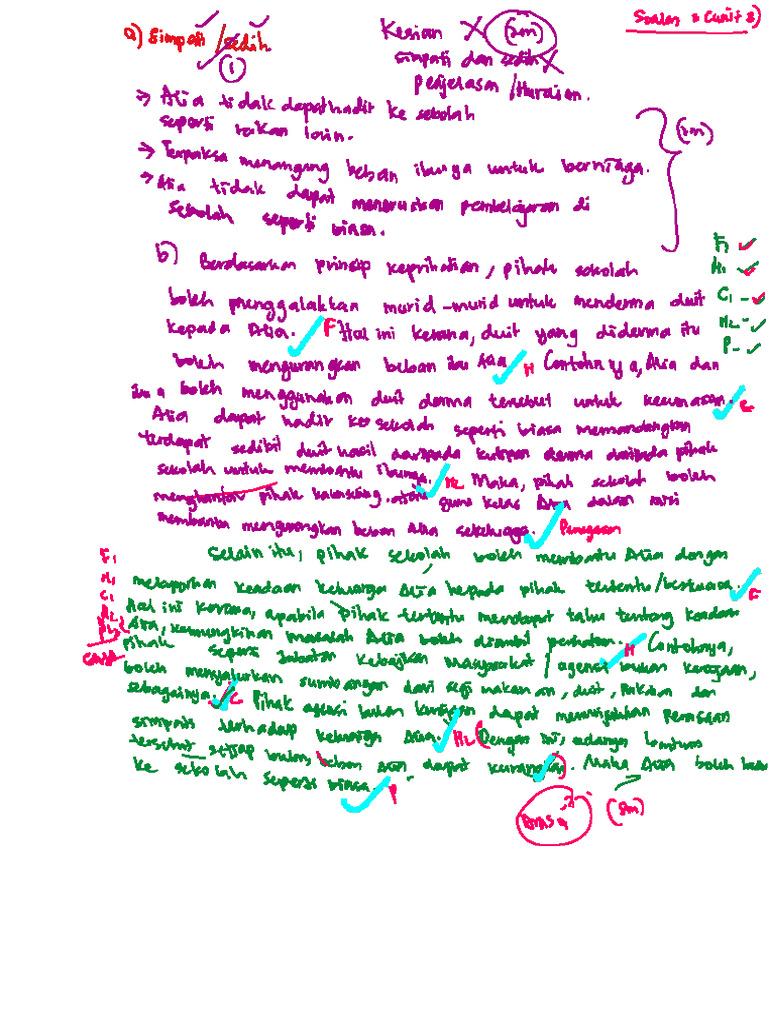 Soalan 2 (unit 2)
a) Simpati / sedih
(1)
Kesian X (2m)
simpati dan sedih X
penjelasan / Huraian.
→ Alia tidak dapat hadir ke sekolah
seperti rakan lain.
→ Terpaksa menangung beban ibunya untuk berniaga.
→ Alia tidak dapat meneruskan pembelajaran di
sekolah seperti biasa.
(2m)
b) Berdasarkan prinsip keprihatian, pihak sekolah
boleh menggalakkan murid-murid untuk menderma duit
kepada Alia. F Hal ini kerana, duit yang diderma itu
boleh mengurangkan beban ibu Alia. H Contohnya, Alia dan
ibu a boleh menggunakan duit derma tersebut untuk kegunaan. C
Alia dapat hadir ke sekolah seperti biasa memandangkan
terdapat sedikit duit hasil daripada kutipan derma daripada pihak
sekolah untuk membantu ibunya. H2 Maka, pihak sekolah boleh
menghantar pihak kaunseling atau guru kelas Alia dalam misi
membantu mengurangkan beban Alia sekeluarga. Penegasan
F1
H1
C1
H2
P
Selain itu, pihak sekolah boleh membantu Alia dengan
melaporkan keadaan keluarga Alia kepada pihak tertentu/berkuasa. F
Hal ini kerana, apabila pihak tertentu mendapat tahu tentang keadaan
Alia, kemungkinan masalah Alia boleh diambil perhatian. H Contohnya,
pihak seperti Jabatan Kebajikan Masyarakat / agensi bukan kerajaan,
boleh menyalurkan sumbangan dari segi makanan, duit, pakaian dan
sebagainya. C Pihak agensi bukan kerajaan dapat menunjukkan perasaan
simpati terhadap keluarga Alia. H2 (Dengan ini, adanya bantuan
tersebut setiap bulan, beban Alia dapat kurangkan). Maka Alia boleh
ke sekolah seperti biasa. P
F1
H1
C1
H2
P
(8m)